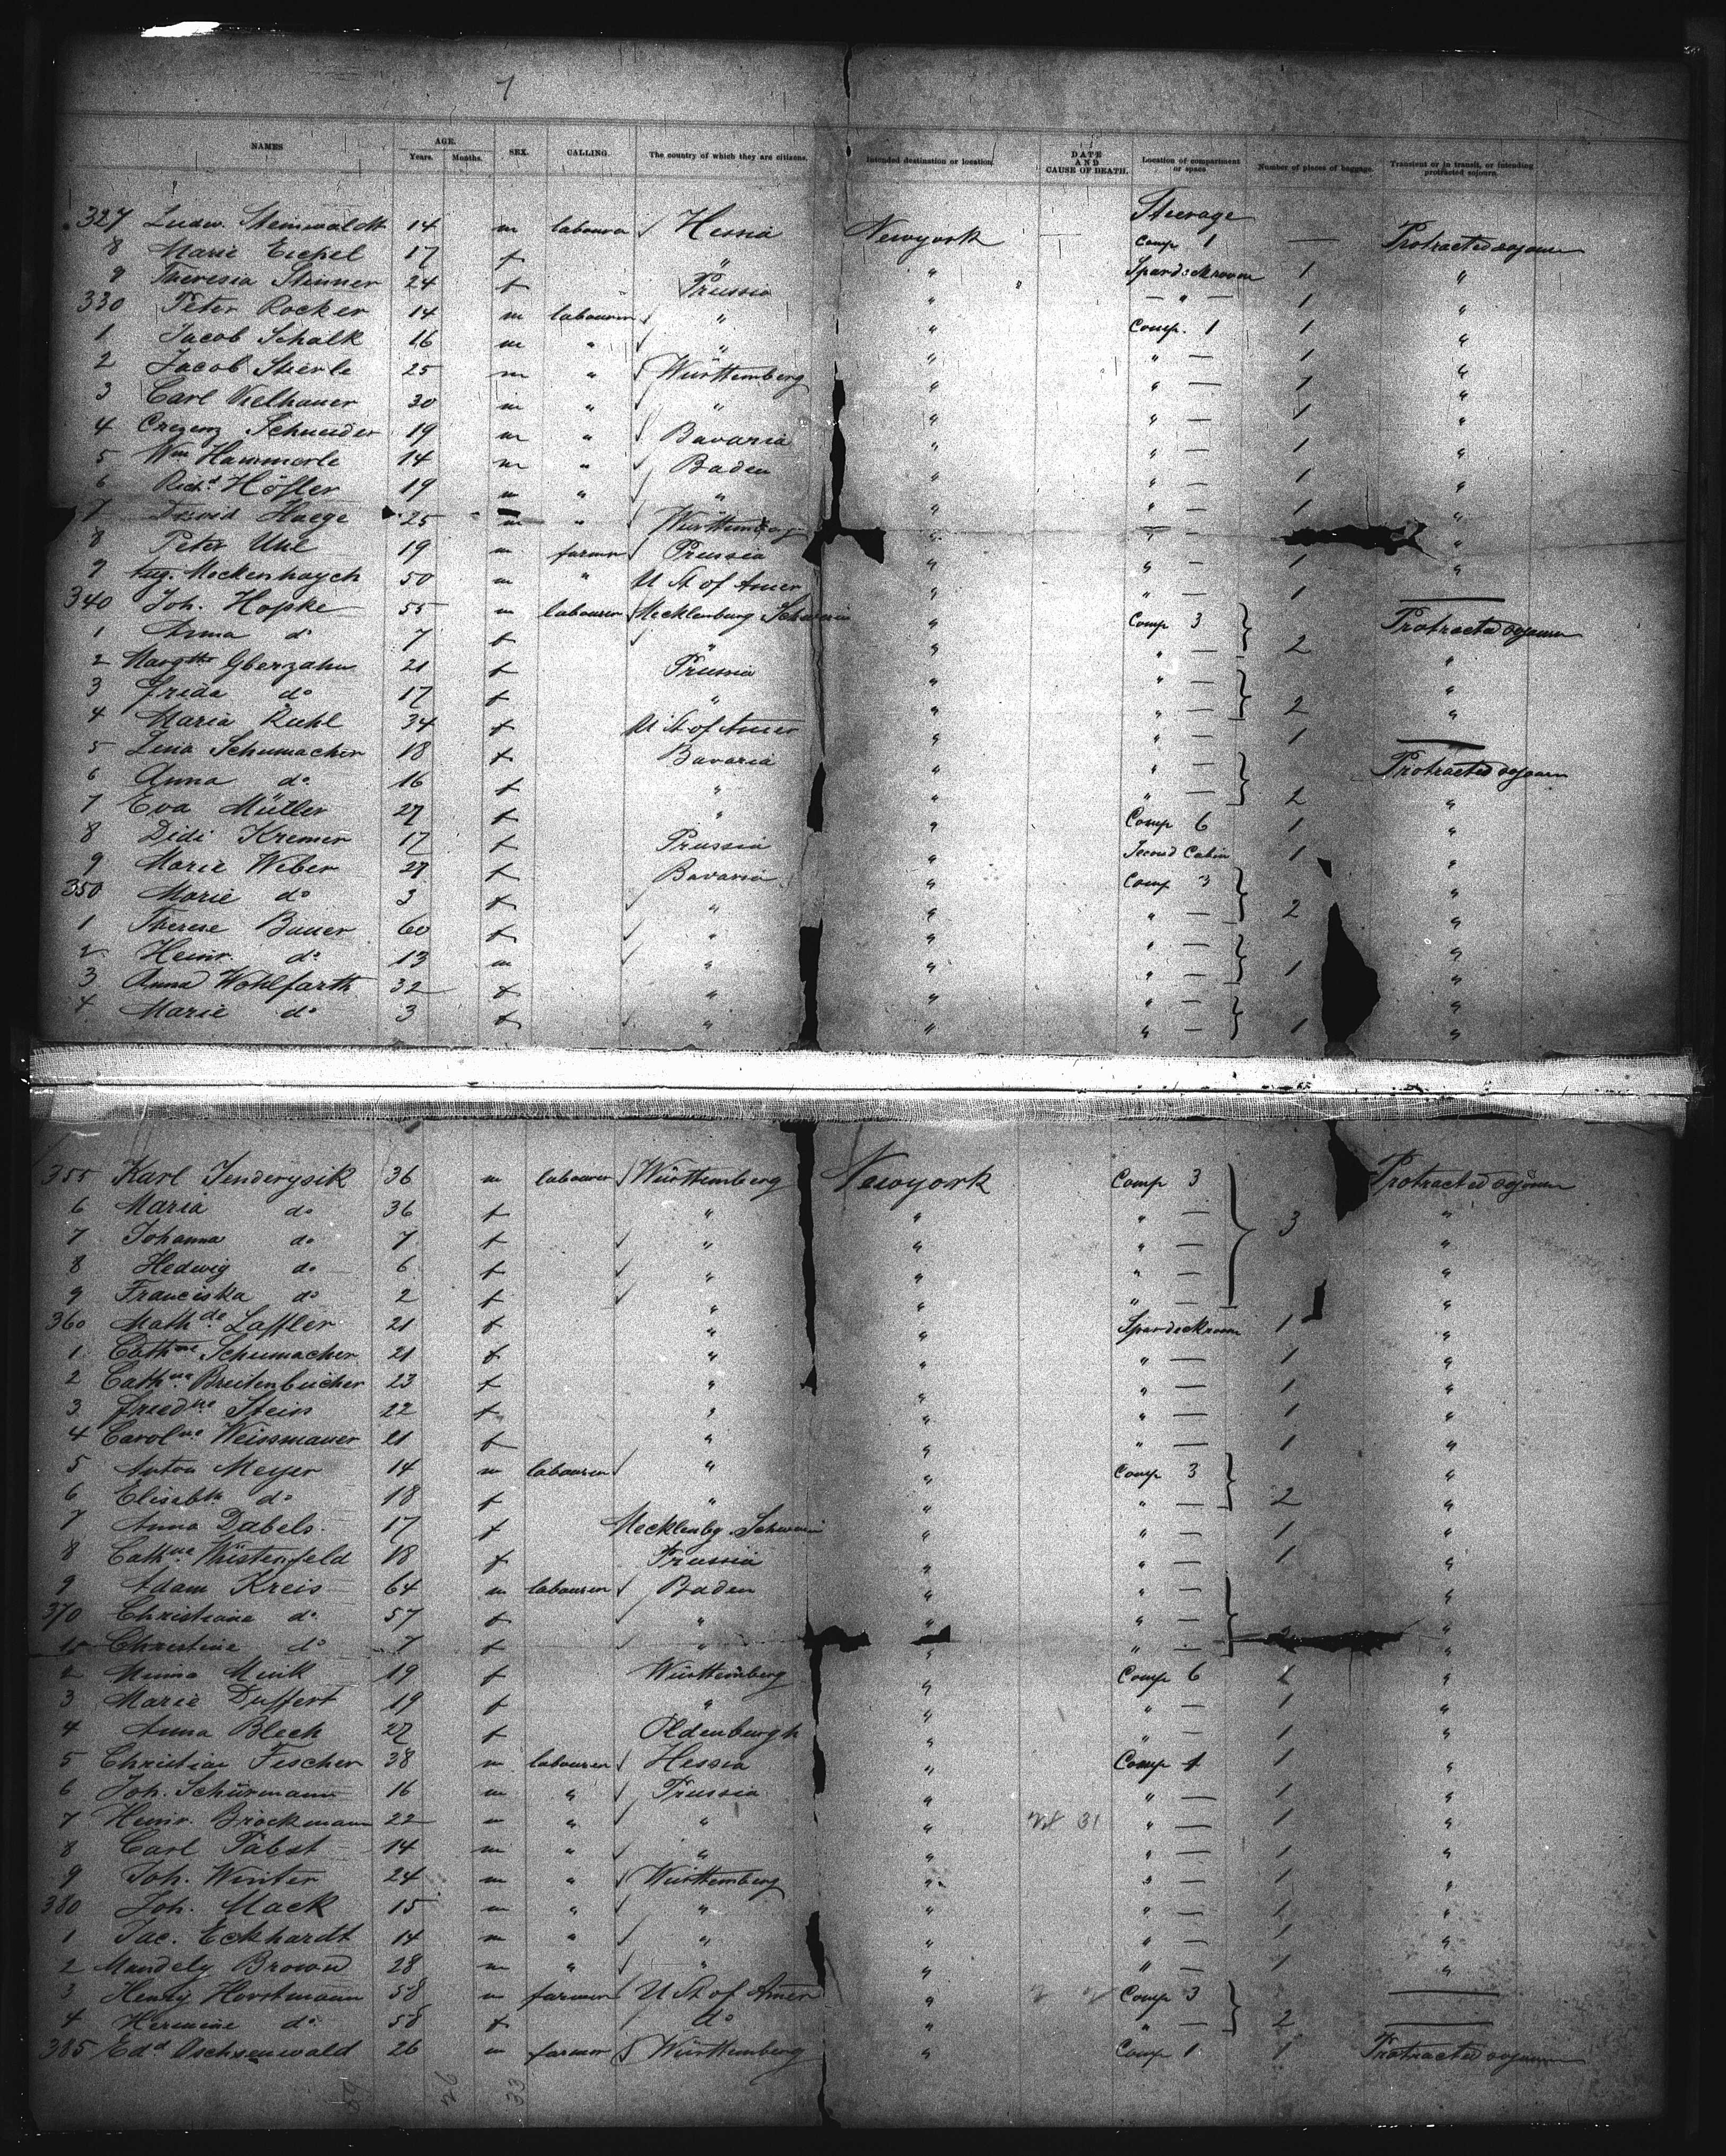 7
NAMES AGE. Years. Months. SEX. CALLING. The country of which they are citizens. Intended destination or location. DATE AND CAUSE OF DEATH. Location of compartment or space Number of pieces of baggage. Transient or in transit, or intending protracted sojourn.
Steerage
327 Ludw. Steinwaldt 14 m labourer ✓ Hessia Newyork — Comp 1 — Protracted sojourn
8 Marie Eichel 17 f " " Spardeckroom 1 "
9 Theresia Steiner 24 f Prussia " — " — 1 "
330 Peter Rocker 14 m labourer ✓ " " Comp. 1 1 "
1 Jacob Schalk 16 m " ✓ " " " — 1 "
2 Jacob Stierle 25 m " ✓ Württemberg " " — 1 "
3 Carl Vielhauer 30 m " ✓ " " " — 1 "
4 Crezenz Schneider 19 m " ✓ Bavaria " " — 1 "
5 Wm Hammerle 14 m " ✓ Baden " " — 1 "
6 Richd Höfler 19 m " ✓ " " " — 1 "
7 David Haege 25 m " ✓ Württemberg " " — "
8 Peter Uhl 19 m farmer ✓ Prussia " " — 1 "
9 Aug. 50 m " U St of Amer " " — 1 —
340 Joh. Hopke 55 m labourer ✓ Mecklenburg Schwerin " Comp 3 Protracted sojourn
1 Anna do 7 f ✓ " " " — 2 "
2 Margthe 21 f Prussia " " — "
3 Frida do 17 f " " " — 2 "
4 Maria Ruhl 34 f U St of Amer " " — 1 —
5 Lena Schumacher 18 f Bavaria " " — Protracted sojourn
6 Anna do 16 f " " " — 2 "
7 Eva Müller 27 f " " Comp 6 1 "
8 Didi Kremer 17 f Prussia " Second Cabin 1 "
9 Marie Weber 27 f Bavaria " Comp 3 "
350 Marie do 3 f ✓ " " " — 2 "
1 Therese Bauer 60 f ✓ " " " — "
2 Heinr. do 13 m ✓ " " " — 1 "
3 Anna Wohlfarth 32 f " " " — "
4 Marie do 3 f ✓ " " " — 1 "
355 Karl Jenderysik 36 m labourer ✓ Württemberg Newyork Comp 3 Protracted sojourn
6 Maria do 36 f " " " — 3 "
7 Johanna do 7 f ✓ " " " — "
8 Hedwig do 6 f ✓ " " " — "
9 Franciska do 2 f ✓ " " " — "
360 Mathde Laffler 21 f " " Spardeckroom 1 "
1 Cathne Schumacher 21 f " " " — 1 "
2 Cathne Breitenbücher 23 f " " " — 1 "
3 Friedke Steiss 22 f " " " — 1 "
4 Carolne Weissmauer 21 f " " " — 1 "
5 Anton Meyer 14 m labourer ✓ " " Comp 3 "
6 Elisebth do 18 f " " " — 2 "
7 Anna Dabels 17 f Mecklenbg. Schwerin " " — 1 "
8 Cathne Wüstenfeld 18 f Prussia " " — 1 "
9 Adam Kreis 64 m labourer ✓ Baden " " — "
370 Christiane do 57 f ✓ " " " — "
1 Christine do 7 f ✓ " " " — 2 "
2 Minna Munk 19 f Württemberg " Comp 6 1 "
3 Marie Duffert 19 f " " " — 1 "
4 Anna Blech 27 f Oldenburgh " " — 1 "
5 Christian Fischer 38 m labourer ✓ Hessia " Comp 1 1 "
6 Joh. Schürmann 16 m " ✓ Prussia " " — 1 "
7 Heinr. Brockmann 22 m " ✓ " " " — 1 "
8 Carl Pabst 14 m " ✓ " " " — 1 "
9 Joh. Winter 24 m " ✓ Württemberg " " — 1 "
380 Joh. Mack 15 m " ✓ " " " — 1 "
1 Jac. Eckhardt 14 m " ✓ " " " — 1 "
2 Mandely Brown 28 m " ✓ " " " — 1 "
3 Henry Horstmann 58 m farmer ✓ U St of Amer " Comp 3 —
4 Hermine do 58 f do " " — 2 —
385 Edd Ochsenwald 26 m farmer ✓ Württemberg " Comp 1 1 Protracted sojourn
59 26 33